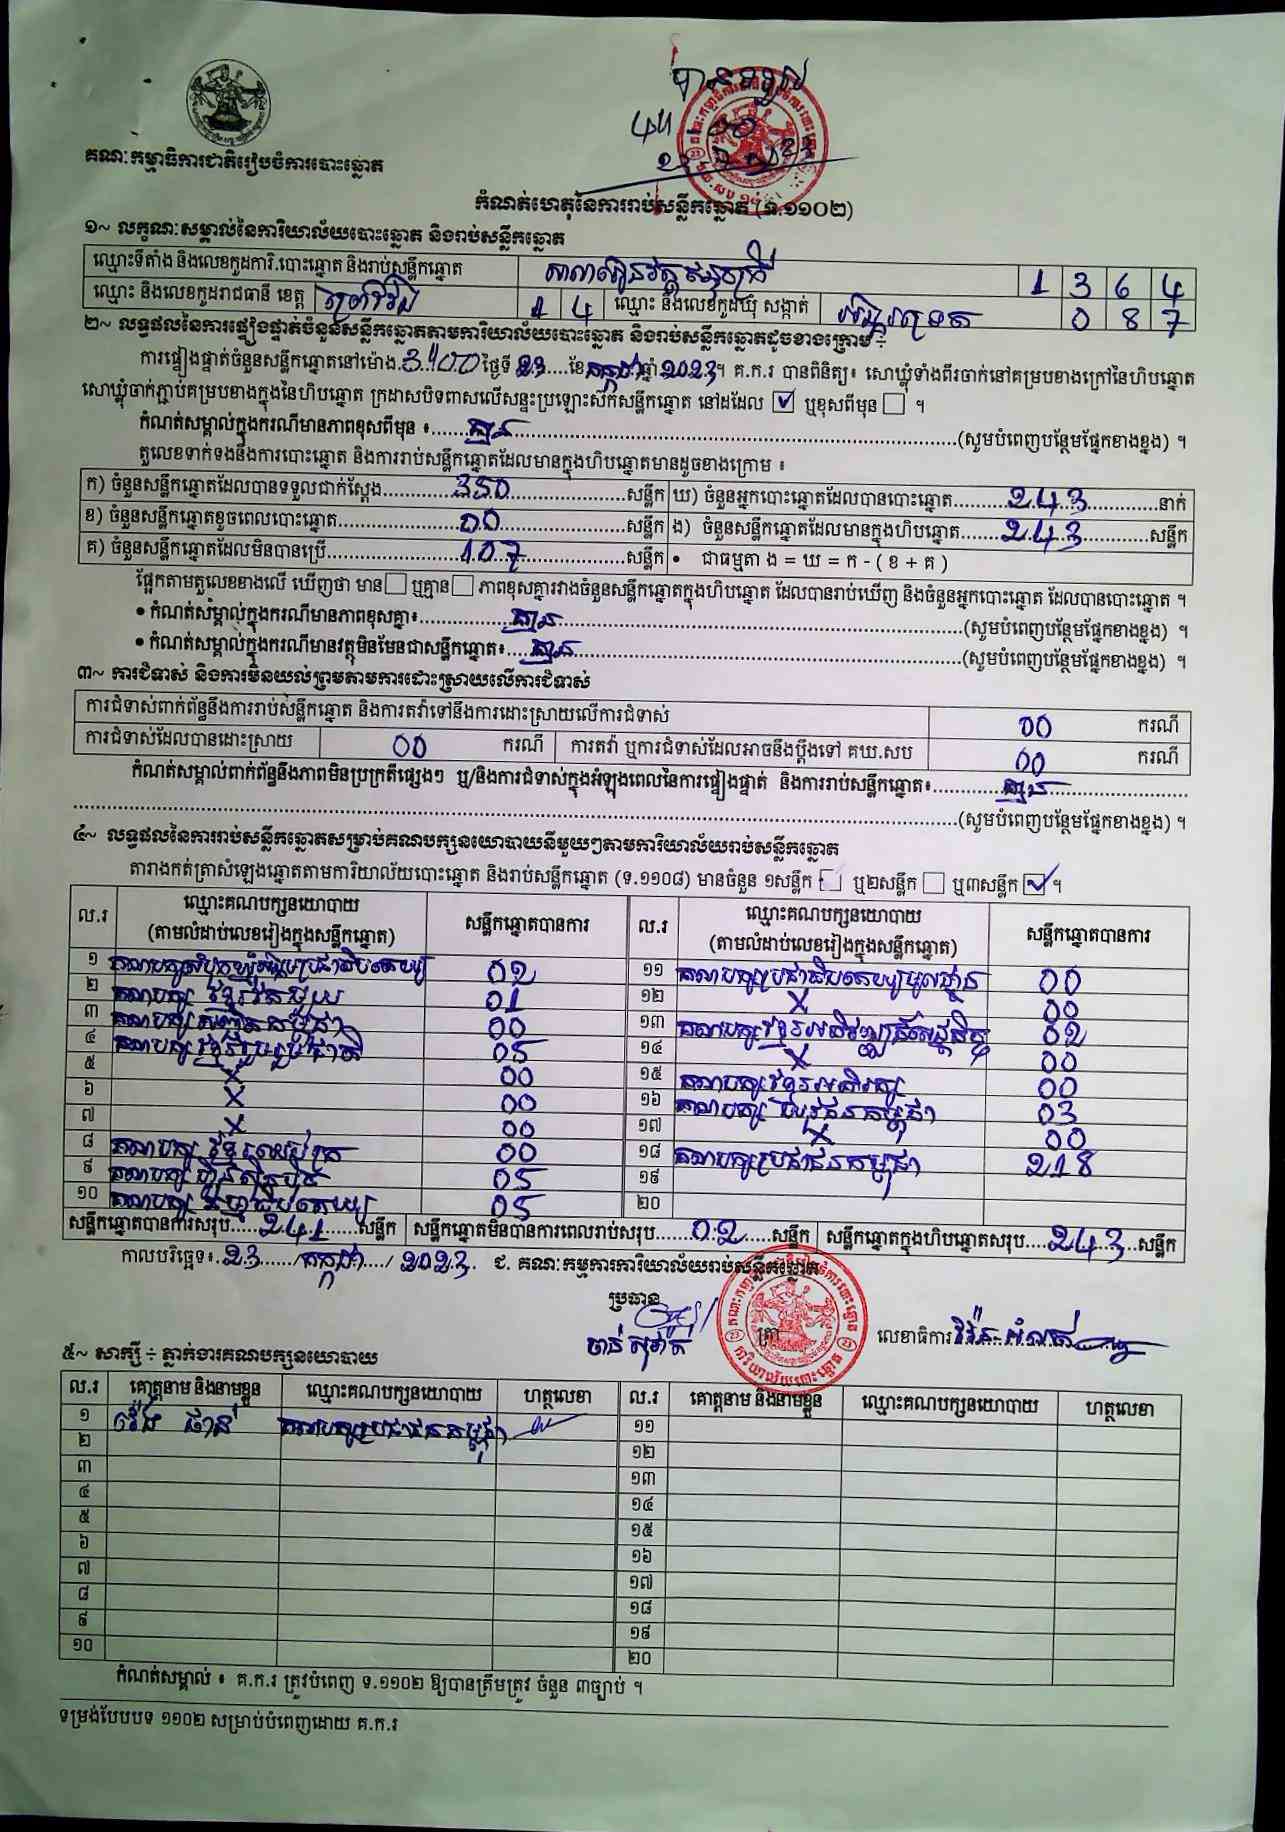 គណៈកម្មាធិការជាតិរៀបចំការបោះឆ្នោត
បានទទួល
កំណត់ហេតុនៃការរាប់សន្លឹកឆ្នោត (ទ.១១០២)
១~ លក្ខណៈសម្គាល់នៃការិយាល័យបោះឆ្នោត និងរាប់សន្លឹកឆ្នោត
ឈ្មោះទីតាំង និងលេខកូដការិ.បោះឆ្នោត និងរាប់សន្លឹកឆ្នោត 1 3 6 4
ឈ្មោះ និងលេខកូដរាជធានី ខេត្ត ព្រៃវែង 1 4 ឈ្មោះ និងលេខកូដឃុំ សង្កាត់ 0 8 7
២~ លទ្ធផលនៃការផ្ទៀងផ្ទាត់ចំនួនសន្លឹកឆ្នោតតាមការិយាល័យបោះឆ្នោត និងរាប់សន្លឹកឆ្នោតដូចខាងក្រោម ÷
ការផ្ទៀងផ្ទាត់ចំនួនសន្លឹកឆ្នោតនៅម៉ោង 3:00 ថ្ងៃទី 23 ខែ កក្កដា ឆ្នាំ 2023។ គ.ក.រ បានពិនិត្យ៖ សោឃ្លុំទាំងពីរចាក់នៅគម្របខាងក្រៅនៃហិបឆ្នោត
សោឃ្លុំចាក់ភ្ជាប់គម្របខាងក្នុងនៃហិបឆ្នោត ក្រដាសបិទពាសលើសន្ទះប្រឡោះស៊កសន្លឹកឆ្នោត នៅដដែល ☑ ឬខុសពីមុន ☐ ។
កំណត់សម្គាល់ក្នុងករណីមានភាពខុសពីមុន ៖ គ្មាន (សូមបំពេញបន្ថែមផ្នែកខាងខ្នង) ។
តួលេខទាក់ទងនឹងការបោះឆ្នោត និងការរាប់សន្លឹកឆ្នោតដែលមានក្នុងហិបឆ្នោតមានដូចខាងក្រោម ៖
ក) ចំនួនសន្លឹកឆ្នោតដែលបានទទួលជាក់ស្តែង 350 សន្លឹក ឃ) ចំនួនអ្នកបោះឆ្នោតដែលបានបោះឆ្នោត 243 នាក់
ខ) ចំនួនសន្លឹកឆ្នោតខូចពេលបោះឆ្នោត 00 សន្លឹក ង) ចំនួនសន្លឹកឆ្នោតដែលមានក្នុងហិបឆ្នោត 243 សន្លឹក
គ) ចំនួនសន្លឹកឆ្នោតដែលមិនបានប្រើ 107 សន្លឹក • ជាធម្មតា ង = ឃ = ក - ( ខ + គ )
ផ្អែកតាមតួលេខខាងលើ ឃើញថា មាន ☐ ឬគ្មាន ☐ ភាពខុសគ្នារវាងចំនួនសន្លឹកឆ្នោតក្នុងហិបឆ្នោត ដែលបានរាប់ឃើញ និងចំនួនអ្នកបោះឆ្នោត ដែលបានបោះឆ្នោត ។
• កំណត់សម្គាល់ក្នុងករណីមានភាពខុសគ្នា៖ គ្មាន (សូមបំពេញបន្ថែមផ្នែកខាងខ្នង) ។
• កំណត់សម្គាល់ក្នុងករណីមានវត្ថុមិនមែនជាសន្លឹកឆ្នោត៖ គ្មាន (សូមបំពេញបន្ថែមផ្នែកខាងខ្នង) ។
៣~ ការជំទាស់ និងការមិនយល់ព្រមតាមការដោះស្រាយលើការជំទាស់
ការជំទាស់ពាក់ព័ន្ធនឹងការរាប់សន្លឹកឆ្នោត និងការតវ៉ាទៅនឹងការដោះស្រាយលើការជំទាស់ 00 ករណី
ការជំទាស់ដែលបានដោះស្រាយ 00 ករណី ការតវ៉ា ឬការជំទាស់ដែលអាចនឹងប្តឹងទៅ គឃ.សប 00 ករណី
កំណត់សម្គាល់ពាក់ព័ន្ធនឹងភាពមិនប្រក្រតីផ្សេងៗ ឬ/និងការជំទាស់ក្នុងអំឡុងពេលនៃការផ្ទៀងផ្ទាត់ និងការរាប់សន្លឹកឆ្នោត៖ គ្មាន
(សូមបំពេញបន្ថែមផ្នែកខាងខ្នង) ។
៤~ លទ្ធផលនៃការរាប់សន្លឹកឆ្នោតសម្រាប់គណបក្សនយោបាយនីមួយៗតាមការិយាល័យរាប់សន្លឹកឆ្នោត
តារាងកត់ត្រាសំឡេងឆ្នោតតាមការិយាល័យបោះឆ្នោត និងរាប់សន្លឹកឆ្នោត (ទ.១១០៨) មានចំនួន ១សន្លឹក ☐ ឬ២សន្លឹក ☐ ឬ៣សន្លឹក ☑ ។
ល.រ ឈ្មោះគណបក្សនយោបាយ (តាមលំដាប់លេខរៀងក្នុងសន្លឹកឆ្នោត) សន្លឹកឆ្នោតបានការ ល.រ ឈ្មោះគណបក្សនយោបាយ (តាមលំដាប់លេខរៀងក្នុងសន្លឹកឆ្នោត) សន្លឹកឆ្នោតបានការ
១ គណបក្សសំបុកឃ្មុំសង្គមប្រជាធិបតេយ្យ 02 ១១ គណបក្សប្រជាធិបតេយ្យមូលដ្ឋាន 00
២ គណបក្ស ខ្មែររួបរួម 01 ១២ X 00
៣ គណបក្ស 00 ១៣ គណបក្សខ្មែរអភិវឌ្ឍន៍សេដ្ឋកិច្ច 02
៤ គណបក្ស ខ្មែររួបរួមជាតិ 05 ១៤ X 00
៥ X 00 ១៥ គណបក្ស 00
៦ X 00 ១៦ គណបក្ស យុវជនកម្ពុជា 03
៧ X 00 ១៧ X 00
៨ គណបក្ស 00 ១៨ គណបក្សប្រជាជនកម្ពុជា 218
៩ គណបក្ស ហ្វ៊ុនស៊ិនប៉ិច 05 ១៩
១០ គណបក្ស ប្រជាធិបតេយ្យ 05 ២០
សន្លឹកឆ្នោតបានការសរុប 241 សន្លឹក សន្លឹកឆ្នោតមិនបានការពេលរាប់សរុប 02 សន្លឹក សន្លឹកឆ្នោតក្នុងហិបឆ្នោតសរុប 243 សន្លឹក
កាលបរិច្ឆេទ៖ 23 / កក្កដា / 2023 ជ. គណៈកម្មការការិយាល័យរាប់សន្លឹកឆ្នោត
ប្រធាន
ត្រា លេខាធិការ
៥~ សាក្សី ÷ ភ្នាក់ងារគណបក្សនយោបាយ
ល.រ គោត្តនាម និងនាមខ្លួន ឈ្មោះគណបក្សនយោបាយ ហត្ថលេខា ល.រ គោត្តនាម និងនាមខ្លួន ឈ្មោះគណបក្សនយោបាយ ហត្ថលេខា
១ គណបក្សប្រជាជនកម្ពុជា ១១
២ ១២
៣ ១៣
៤ ១៤
៥ ១៥
៦ ១៦
៧ ១៧
៨ ១៨
៩ ១៩
១០ ២០
កំណត់សម្គាល់ ៖ គ.ក.រ ត្រូវបំពេញ ទ.១១០២ ឱ្យបានត្រឹមត្រូវ ចំនួន ៣ច្បាប់ ។
ទម្រង់បែបបទ ១១០២ សម្រាប់បំពេញដោយ គ.ក.រ